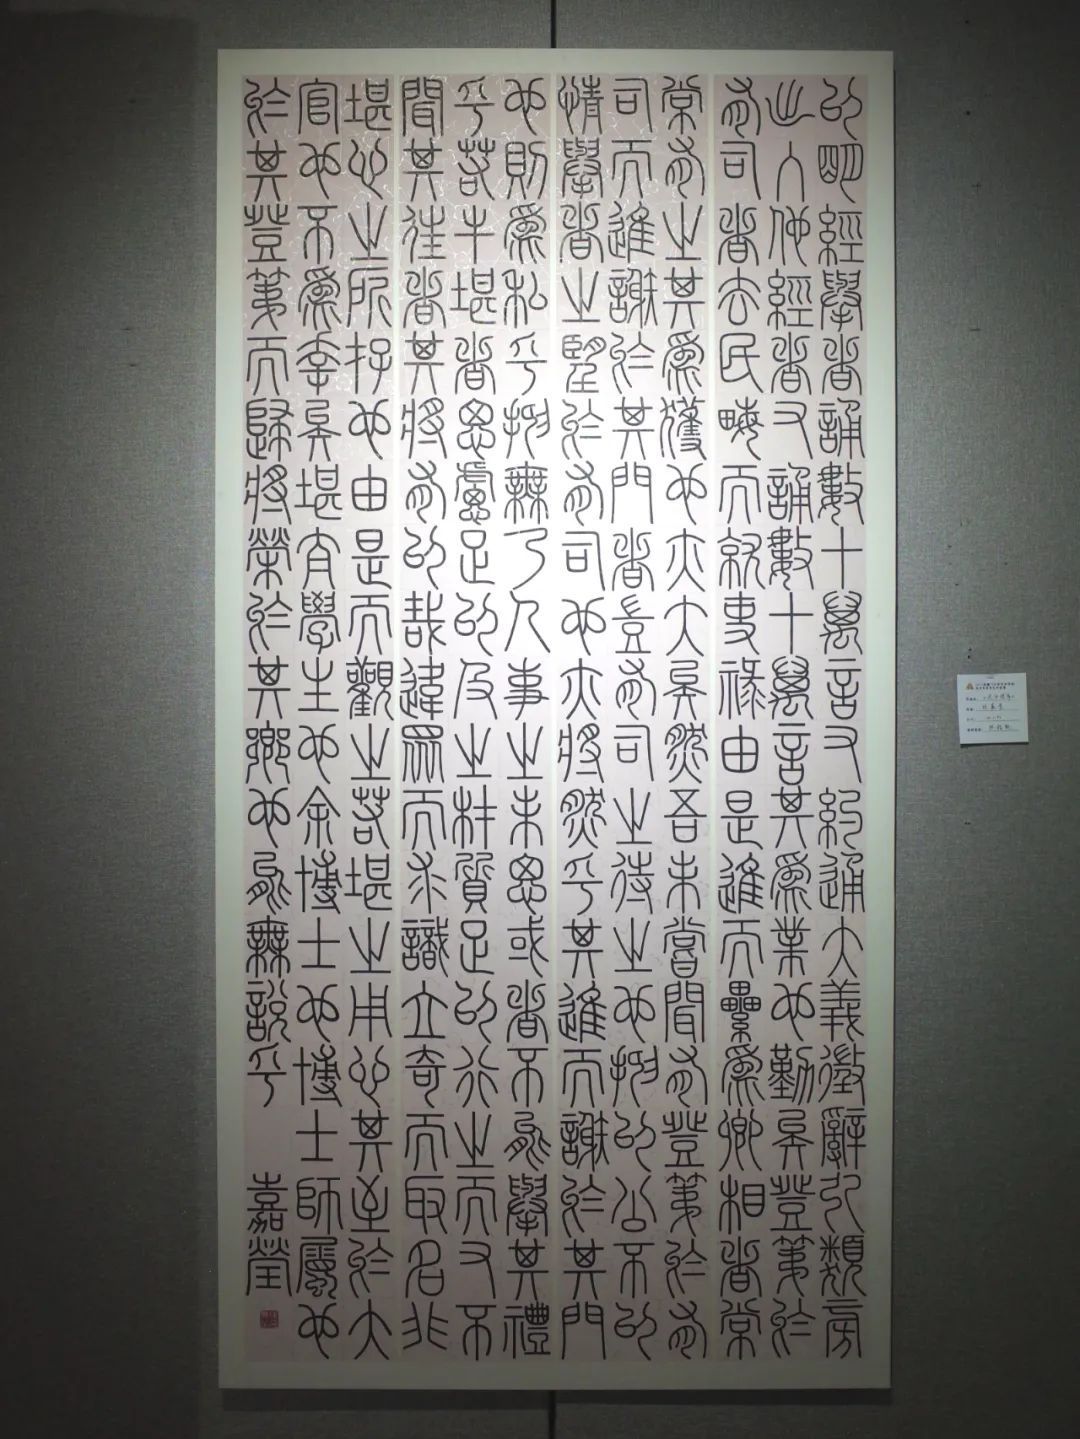 以明經舉者誦數十萬言又約通大義徵辭引類旁
出入他經者又誦數十萬言其為業也勤矣登第於
有司者去民畮而就吏祿由是進而纍為卿相者常
常有之其為獲也亦大矣然吾未嘗聞有登第於有
司而進謝於其門者豈有司之待之也抑以公不以
情舉者之望於有司也亦將然乎其進而謝於其門
也則為私乎抑無乃人事之未思或者不能舉其禮
乎若牛堪者思慮足以及之材質足以行之而又不
聞其往者其將有以哉違眾而求識立奇而取名非
堪心之所存也由是而觀之若堪之用心其至於大
官也不為幸矣堪太學生也余博士也博士師屬也
於其登第而歸將榮於其鄉也能無說乎
嘉瑩